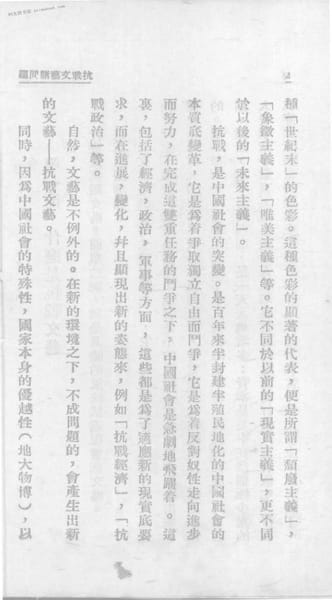 抗戰文藝諸問題
種「世紀末」的色彩。這種色彩的顯著的代表，便是所謂「頹廢主義」，
「象徵主義」，「唯美主義」等。它不同於以前的「現實主義」，更不同
於以後的「未來主義」。
抗戰，是中國社會的突變。是百年來半封建半殖民地化的中國社會的
本質底變革，它是爲着爭取獨立自由而鬥爭，它是爲着反對奴性走向進步
而努力，在完成這雙重任務的鬥爭之下，中國社會是急劇地飛躍着。這
裏，包括了經濟，政治，軍事等方面，這些都是爲了適應新的現實底要
求，而在進展，變化，幷且顯現出新的姿態來，例如「抗戰經濟」，「抗
戰政治」等。
自然，文藝是不例外的。在新的環境之下，不成問題的，會產生出新
的文藝——抗戰文藝。
同時，因爲中國社會的特殊性，國家本身的優越性（地大物博），以